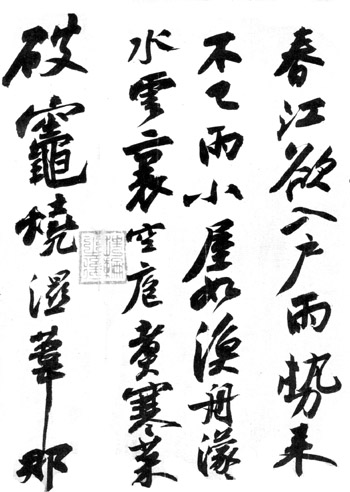 春江欲入戶雨勢来
不已雨小屋如漁舟濛
水雲裏空庖煮寒菜
破竈燒濕葦那